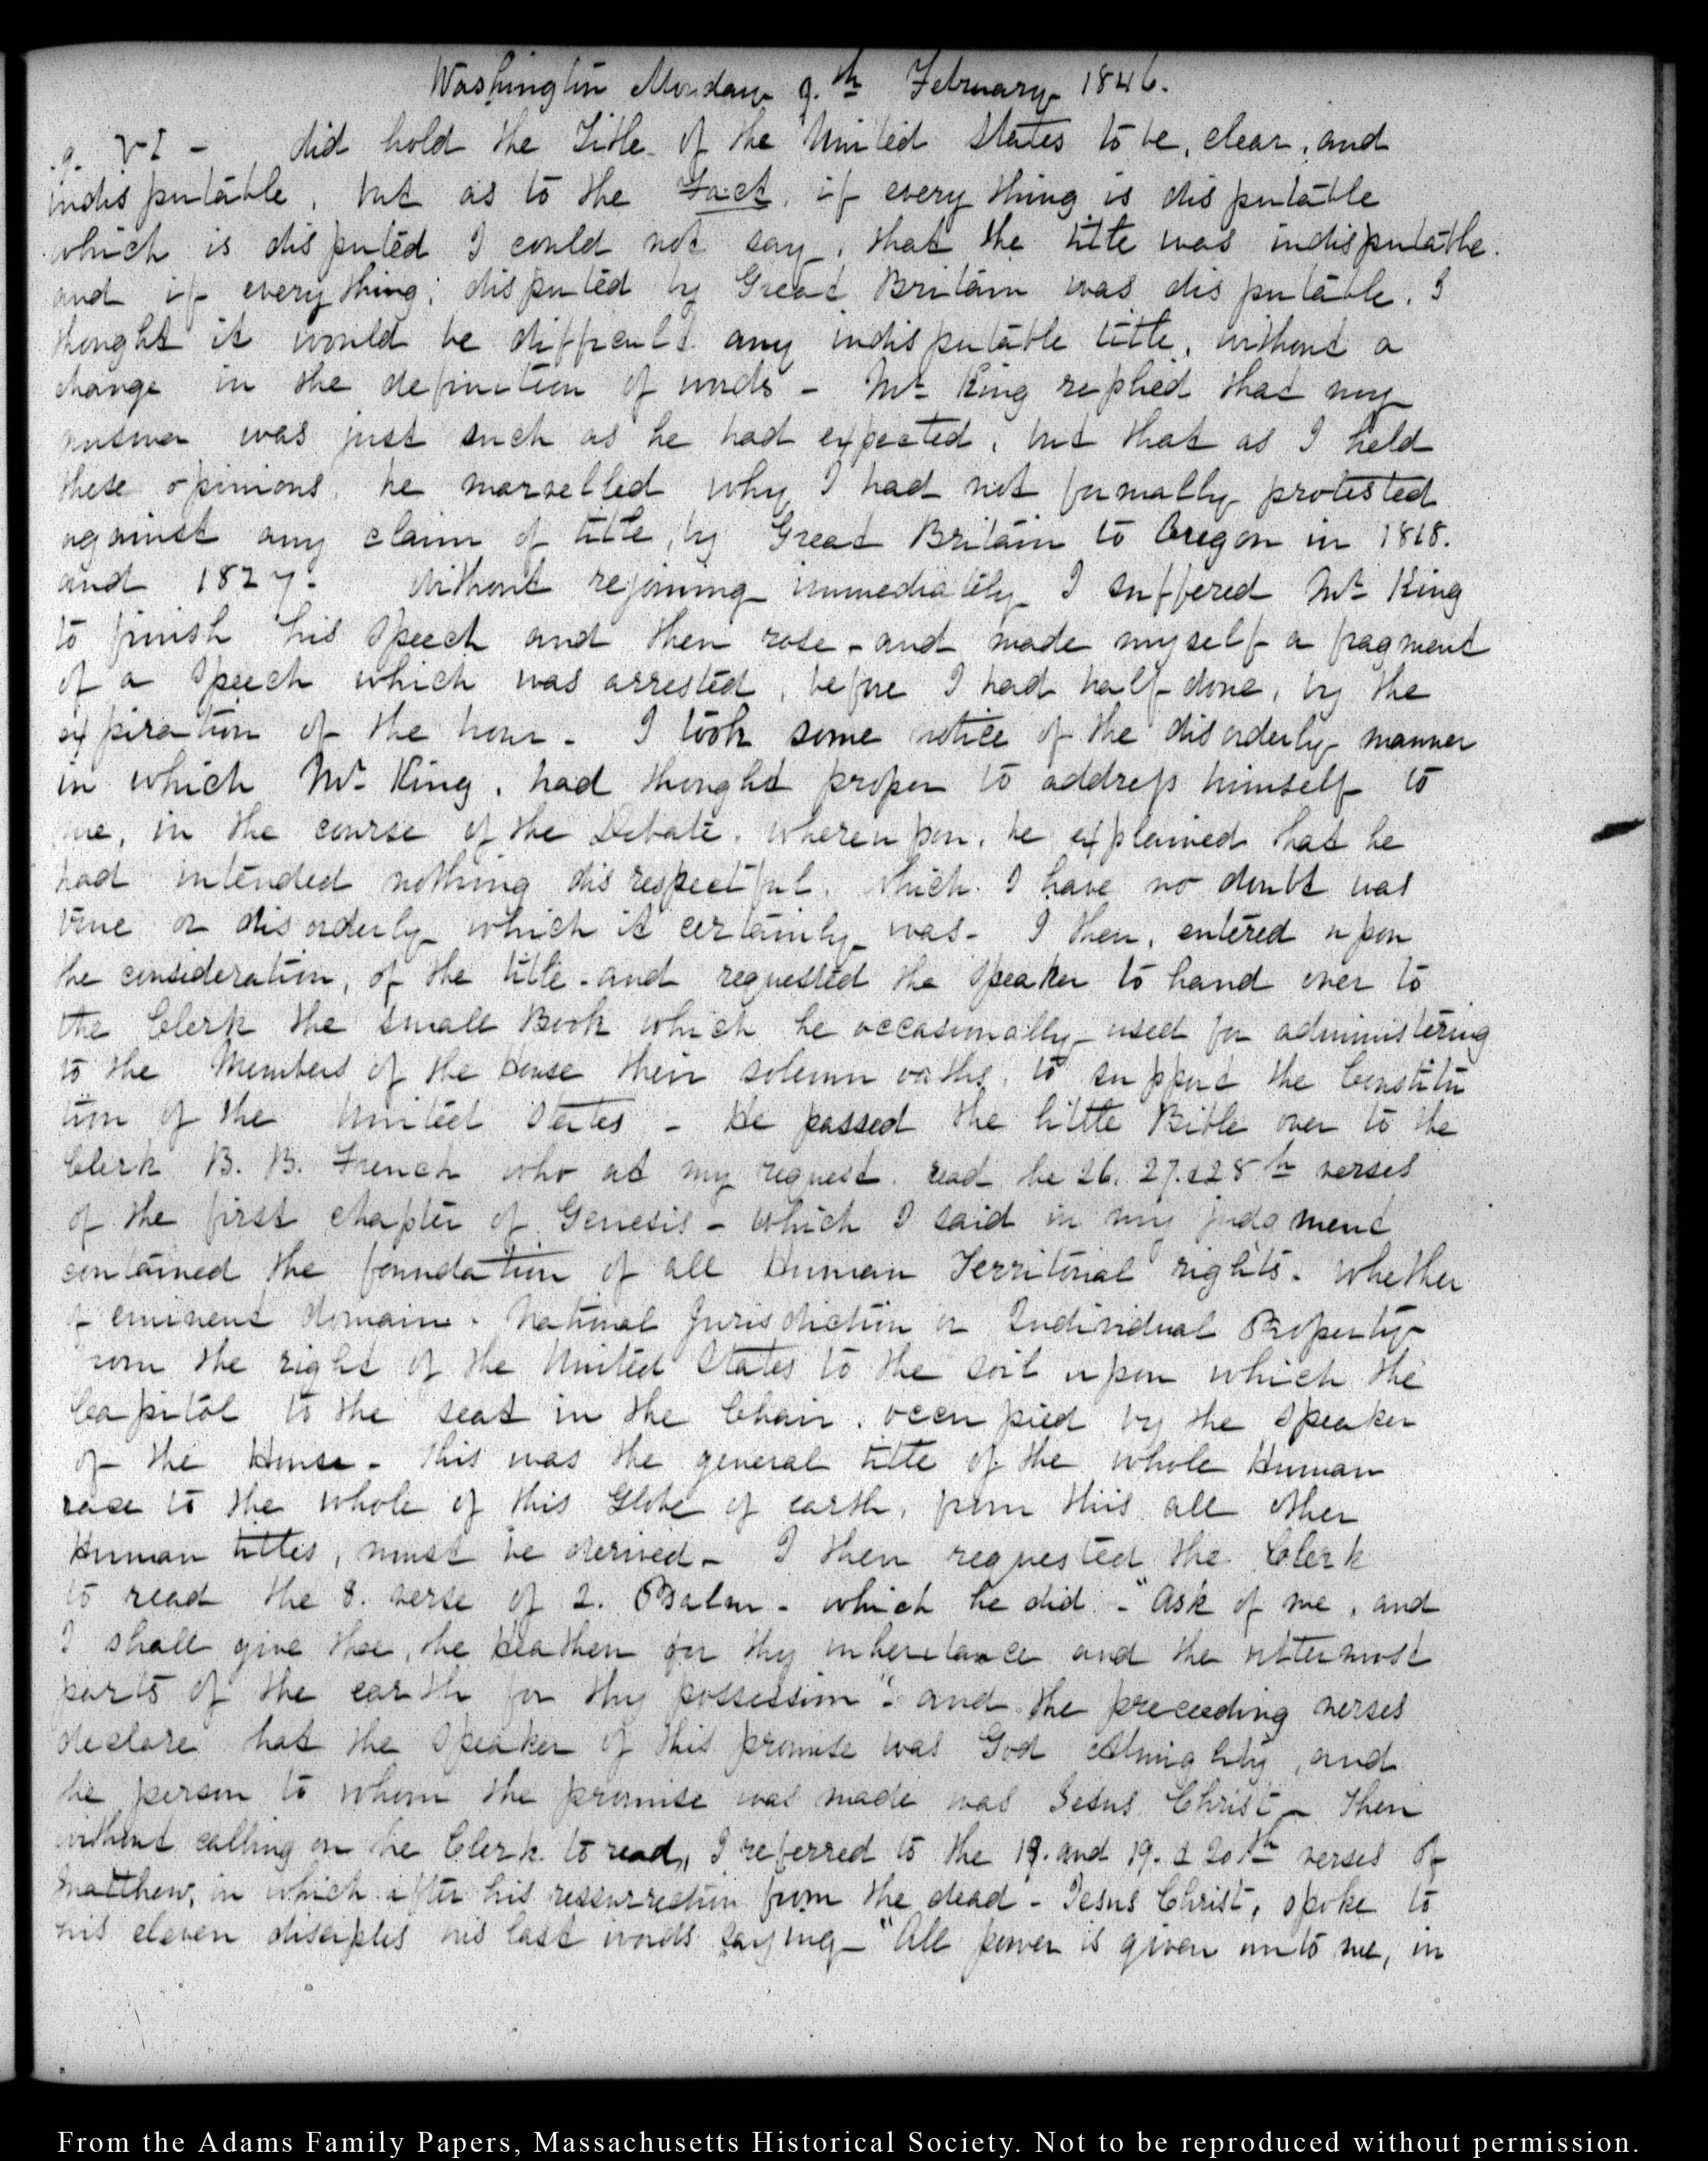 Washington Monday 9.th February 1846.
9. VI - did hold the Title of the United States to be, clear, and
indisputable, but as to the Fact, if every thing is disputable
which is disputed I could not say, that the title was indisputable.
and if every thing; disputed by Great Britain was disputable. I
thought it would be difficult any indisputable title, without a
change in the definition of words - Mr King replied that my
answer was just such as he had expected, but that as I held
these opinions, he marvelled why I had not formally protested
against any claim of title, by Great Britain to Oregon in 1818.
and 1827. Without rejoining immediately I suffered Mr King
to finish his speech and then rose - and made myself a fragment
of a Speech which was arrested, before I had half done, by the
expiration of the hour - I took some notice of the disorderly manner
in which Mr King, had thought proper to address himself to
me, in the course of the Debate. whereupon, he explained that he
had intended nothing disrespectful. which I have no doubt was
true or disorderly which it certainly was - I then, entered upon
the consideration, of the title - and requested the Speaker to hand over to
the Clerk the small Book which he occasionally used for administering
to the Members of the House their solemn oaths, to support the Constitu
tion of the United States - He passed the little Bible over to the
Clerk B. B. French who at my request read he 26. 27. & 28th verses
of the first chapter of Genesis - which I said in my judgment
contained the foundation of all Human Territorial rights - whether
of eminent domain - National Jurisdiction or Individual Property
from the right of the United States to the soil upon which the
Capitol to the seat in the Chair, occupied by the Speaker
of the House - this was the general title of the whole Human
race to the whole of this Globe of earth, from this all other
Human titles, must be derived - I then requested the Clerk
to read the 8. verse of 2. Psalm - which he did - "Ask of me, and
I shall give thee, the Heathen for thy inheritance and the uttermost
parts of the earth for thy possession" - and the preceeding verses
declare that the Speaker of this promise was God Almighty, and
he person to whom the promise was made was Jesus Christ - Then
without calling on he Clerk to read, I referred to the 18. and 19. & 20th verses of
Matthew, in which after his ressurrection from the dead - Jesus Christ, spoke to
his eleven disciples his last words saying - "All power is given unto me, in
From the Adams Family Papers, Massachusetts Historical Society. Not to be reproduced without permission.